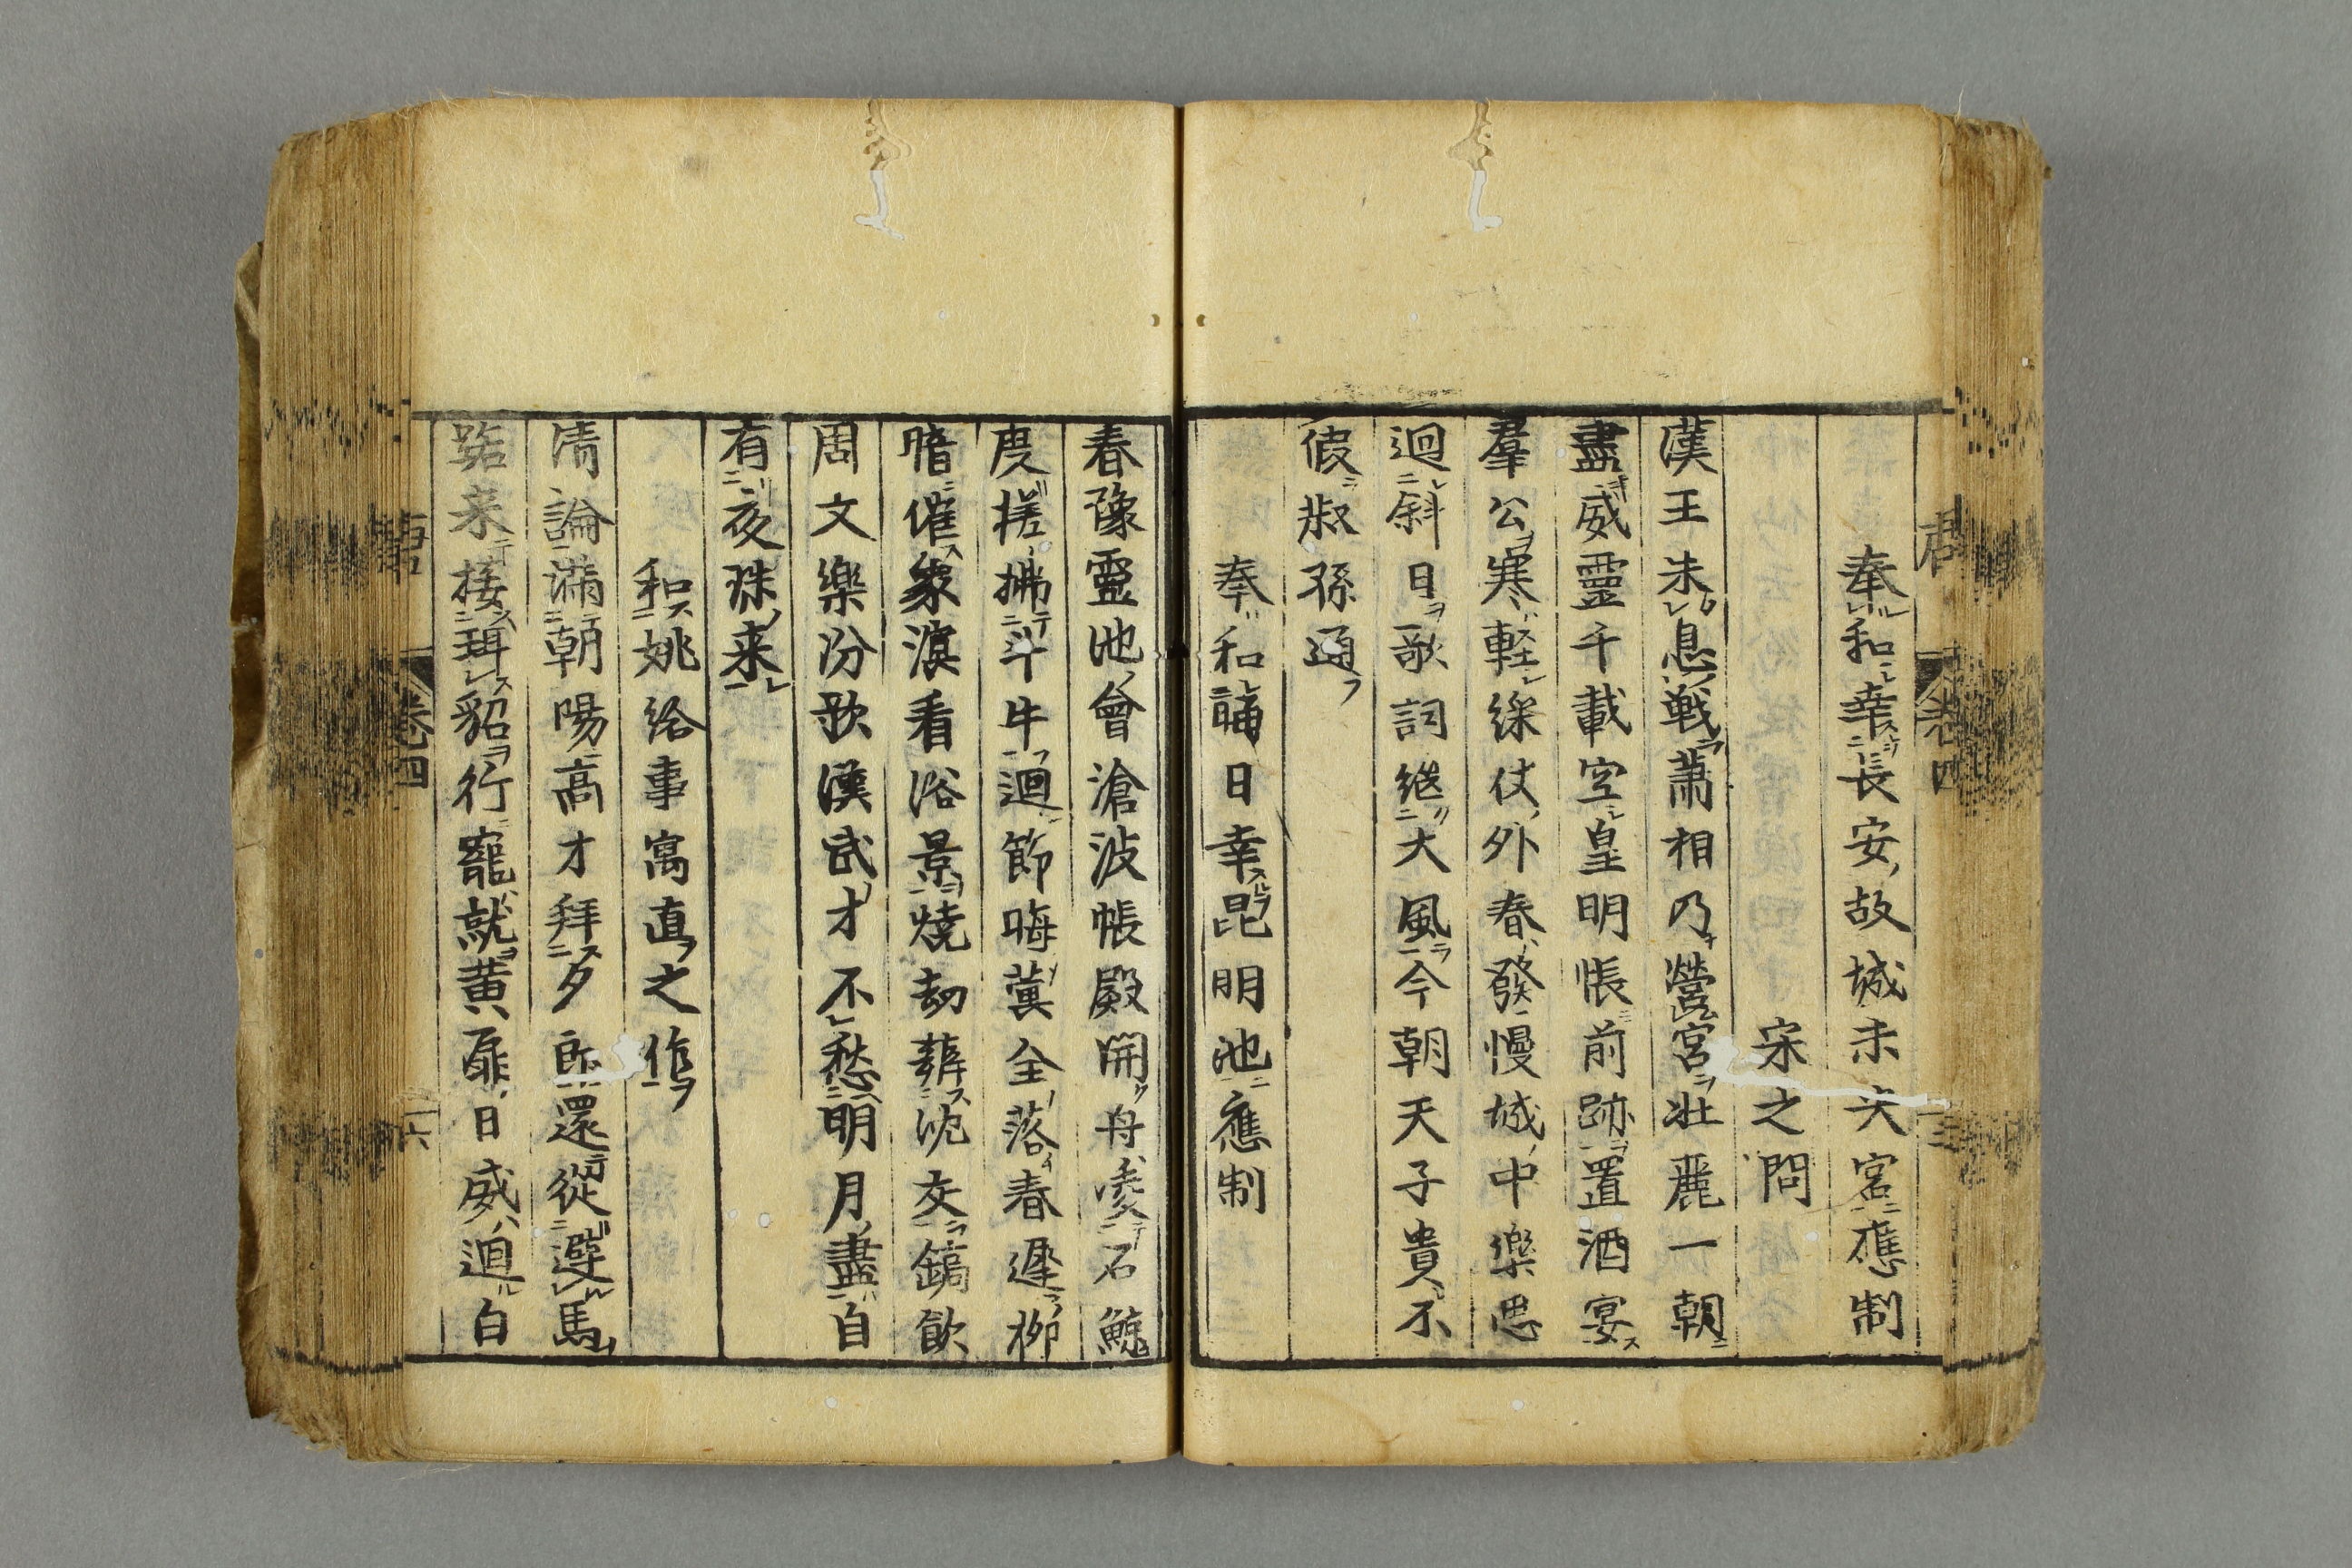 奉和幸長安故城未央宮應制
宋之問
漢王未息戦蕭相乃營宮壯麗一朝
盡威靈千載空皇明悵前跡置酒宴
羣公寒軽綵仗外春發幔城中樂思
迴斜日歌詞継大風今朝天子貴不
假叔孫通
奉和晦日幸昆明池應制
春豫靈池會滄波帳殿開舟凌石鯨
度槎拂斗牛迴節晦蓂全落春遲柳
暗催象溟看浴景燒劫辨沈灰鎬飲
周文樂汾歌漢武才不愁明月盡自
有夜珠来
和姚給事寓直之作
清論滿朝陽高才拜夕郎還從避馬
路来接珥貂行寵就黄扉日威迴白
卷四